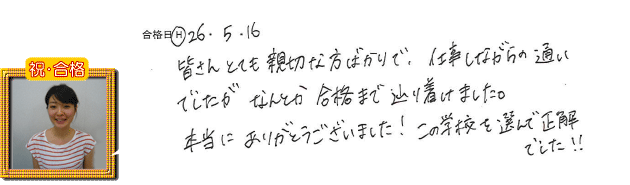 合格日 H 26. 5. 16
祝・合格
皆さんとても親切な方ばかりで、仕事しながらの通い
でしたが なんとか 合格まで辿り着けました。
本当に ありがとうございました！ この学校を選んで正解
でした!!